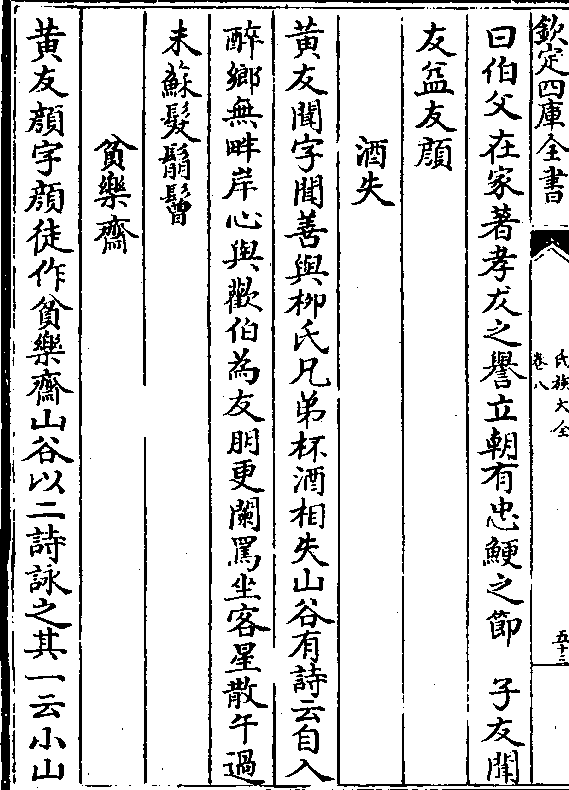 欽定四庫全書
氏族大全
卷八
五十三
曰伯父在家著孝友之譽立朝有忠鯁之節　子友聞
友益友顔
酒失
黄友聞字聞善與柳氏凡弟杯酒相失山谷有詩云自入
醉鄉無畔岸心與歡伯為友朋更闌罵坐客星散午過
未蘇髮鬅鬙
貧樂齋
黄友顔字顔徒作貧樂齋山谷以二詩詠之其一云小山